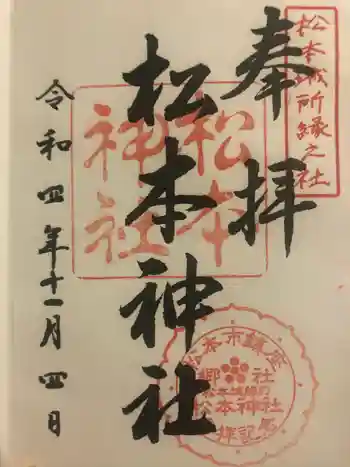 松本城所縁之社
奉拝
松本神社
松本神社
令和四年十一月四日
松本市鎮座
郷社
松本神社